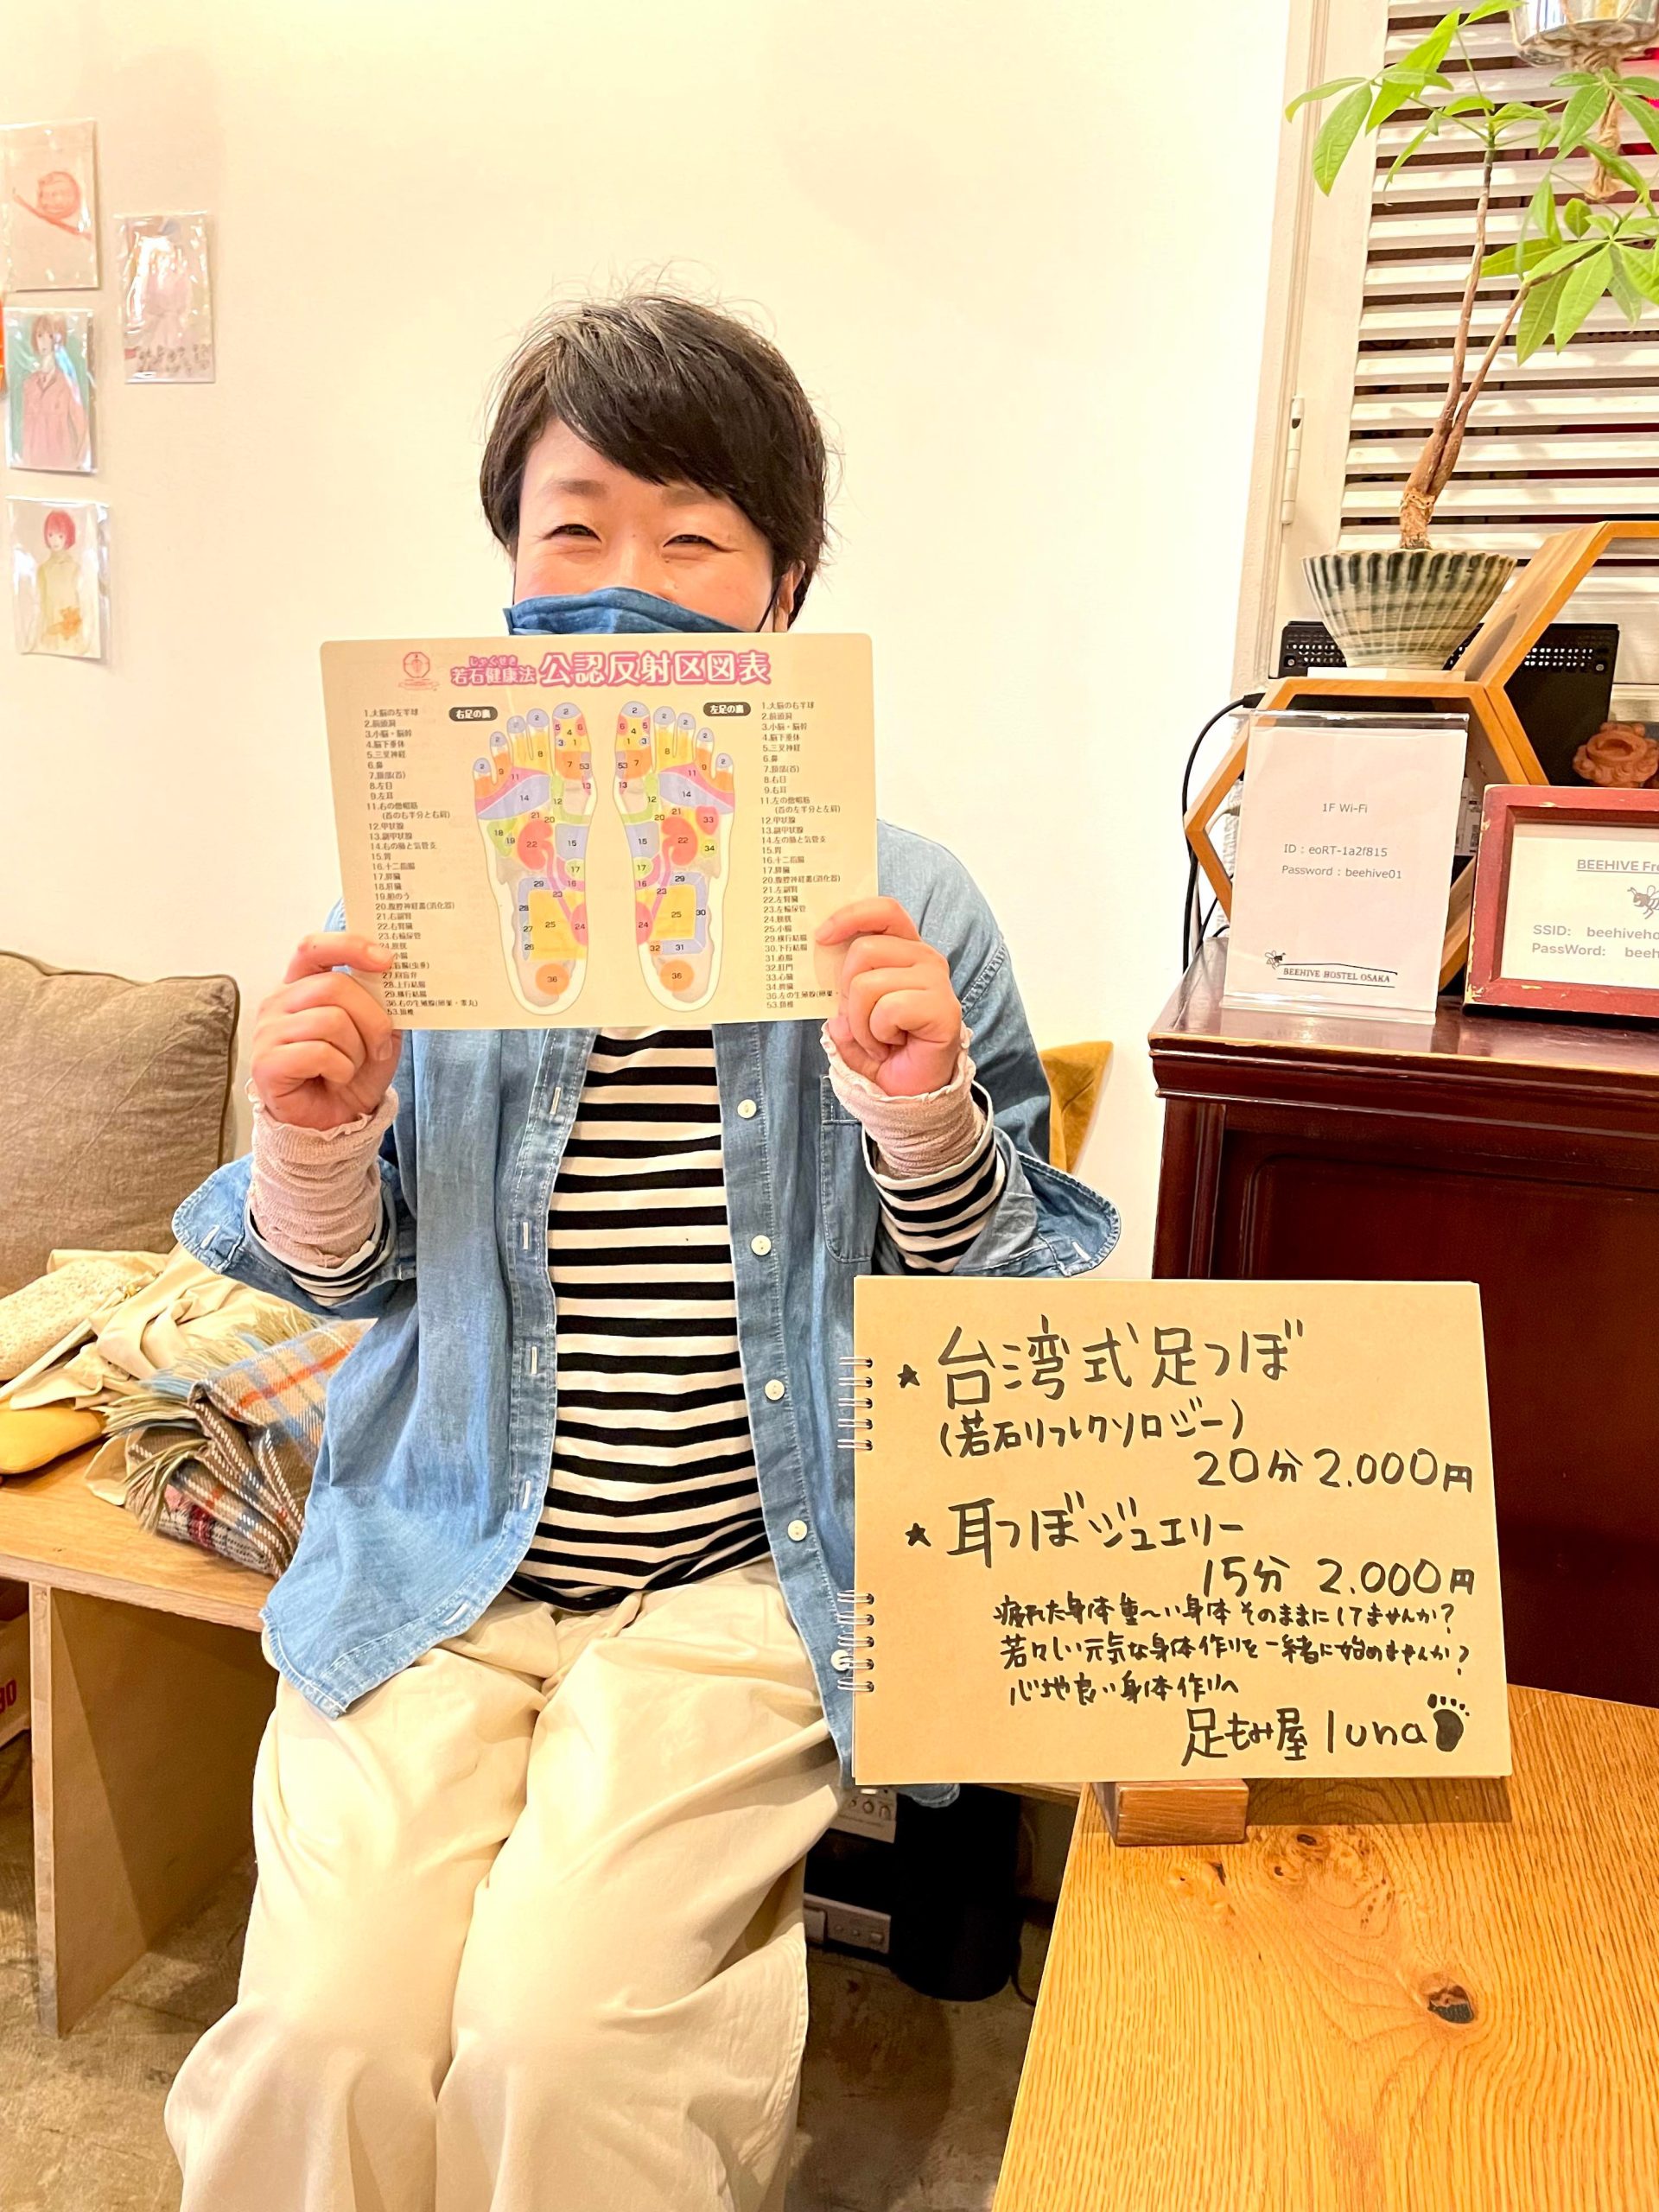 じゃくせき
若石健康法 公認反射区図表
右足の裏
左足の裏
1.大脳の左半球
2.前頭洞
3.小脳・脳幹
4.脳下垂体
5.三叉神経
6.鼻
7.頸部(首)
8.左目
9.左耳
11.右の僧帽筋
(首の右半分と右肩)
12.甲状腺
13.副甲状腺
14.右の肺と気管支
15.胃
16.十二指腸
17.膵臓
18.肝臓
19.胆のう
20.腹腔神経叢(消化器)
21.右副腎
22.右腎臓
23.右輸尿管
24.膀胱
小腸
盲腸(虫垂)
27.回盲弁
28.上行結腸
29.横行結腸
36.右の生殖腺(卵巣・睾丸)
53.頸椎
1.大脳の右半球
2.前頭洞
3.小脳・脳幹
4.脳下垂体
5.三叉神経
6.鼻
7.頸部(首)
8.右目
9.右耳
11.左の僧帽筋
(首の左半分と左肩)
12.甲状腺
13.副甲状腺
14.左の肺と気管支
15.胃
16.十二指腸
17.膵臓
20.腹腔神経叢(消化器)
21.左副腎
22.左腎臓
23.左輸尿管
24.膀胱
25.小腸
29.横行結腸
30.下行結腸
31.直腸
32.肛門
33.心臓
34.脾臓
36.左の生殖腺(卵巣・
53.頸椎
1F Wi-Fi
ID : eoRT-1a2f815
Password : beehive01
BEEHIVE HOSTEL OSAKA
BEEHIVE Fre
SSID: beehiveho
PassWord: beeh
★ 台湾式足つぼ
(若石リフレクソロジー)
20分 2.000円
★ 耳つぼジュエリー
15分 2.000円
疲れた身体 重〜い身体 そのままにしてませんか?
若々しい元気な身体作りを一緒に始めませんか?
心地良い身体作りへ
足もみ屋 luna